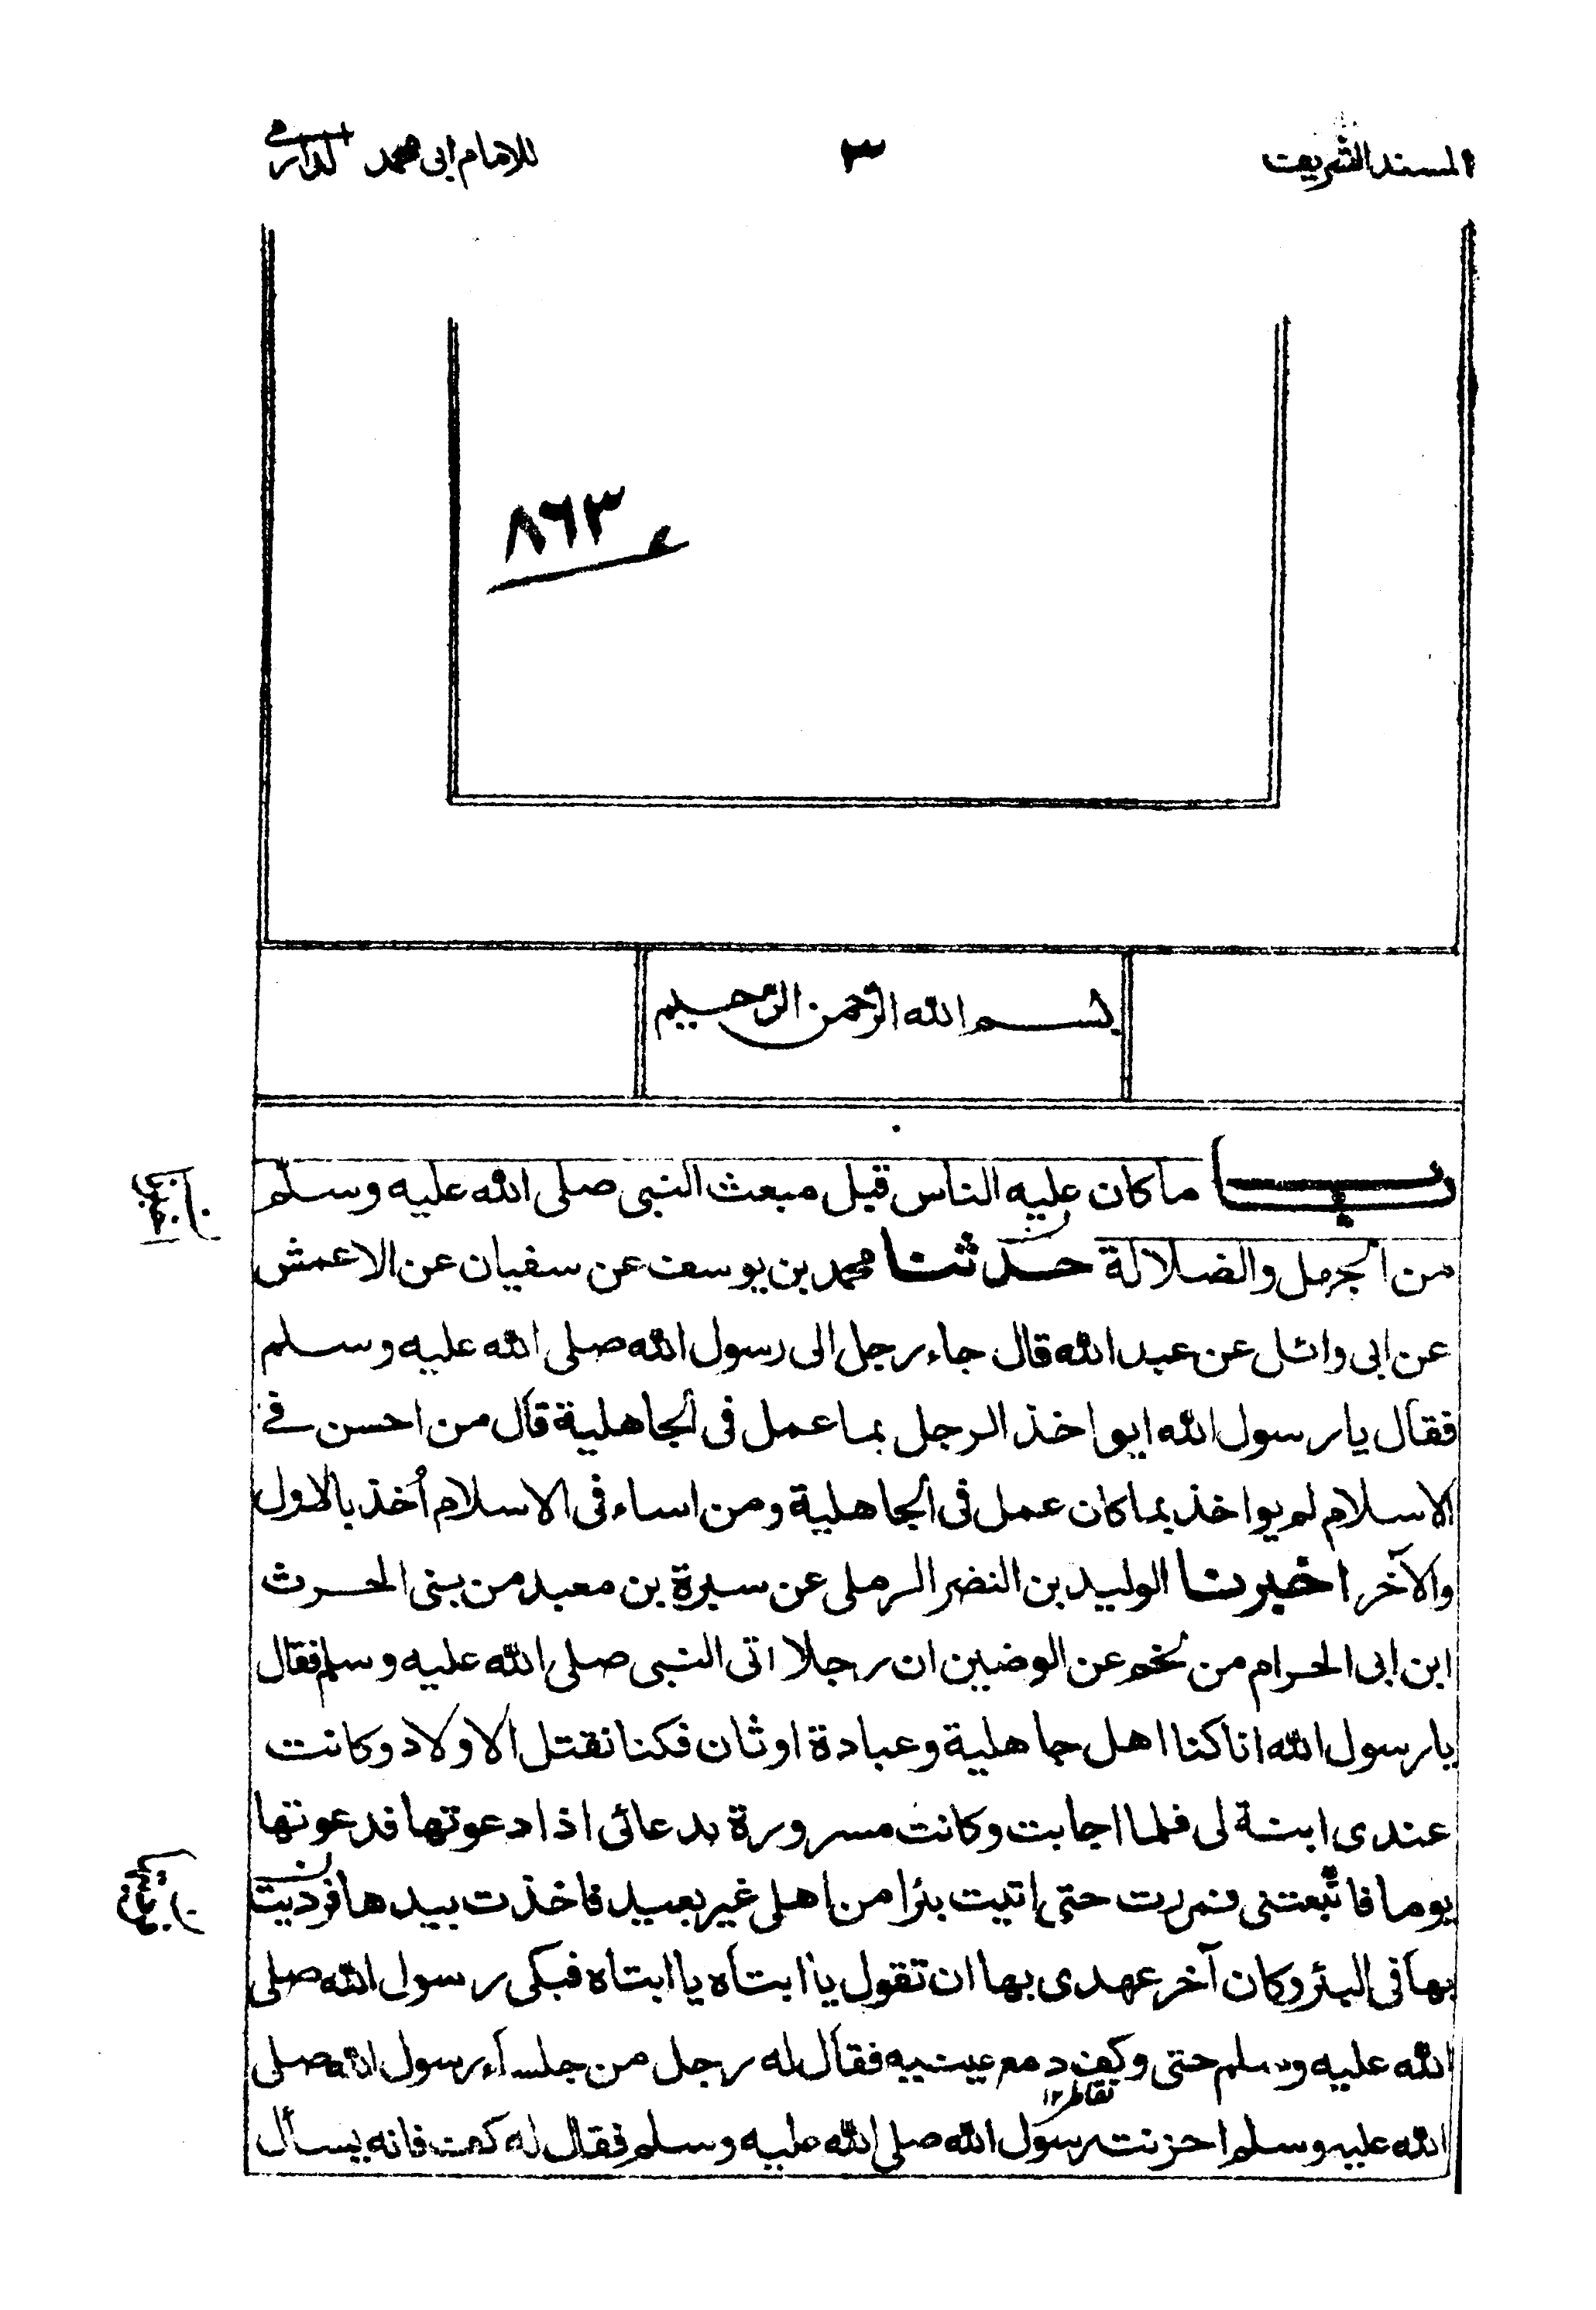 المسند الشريف ٣ للامام ابى محمد الدارمى
٨٦٣
بسم الله الرحمن الرحيم
باب ما كان عليه الناس قبل مبعث النبى صلى الله عليه وسلم
من الجهل والضلالة حدثنا محمد بن يوسف عن سفيان عن الاعمش
عن ابى وائل عن عبد الله قال جاء رجل الى رسول الله صلى الله عليه وسلم
فقال يا رسول الله ايواخذ الرجل بما عمل فى الجاهلية قال من احسن فى
الاسلام لم يواخذ بما كان عمل فى الجاهلية ومن اساء فى الاسلام أخذ بالاول
والآخر اخبرنا الوليد بن النضر الرملى عن سبرة بن معبد من بنى الحرث
ابن ابى الحرام من لخم عن الوضين ان رجلا اتى النبى صلى الله عليه وسلم فقال
يا رسول الله انا كنا اهل جاهلية وعبادة اوثان فكنا نقتل الاولاد وكانت
عندى ابنة لى فلما اجابت وكانت مسرورة بدعائى اذا دعوتها فدعوتها
يوما فاتبعتنى فمررت حتى اتيت بئرا من اهلى غير بعيد فاخذت بيدها فرديت
بها فى البئر وكان آخر عهدى بها ان تقول يا ابتاه يا ابتاه فبكى رسول الله صلى
الله عليه وسلم حتى وكف دمع عينيه فقال له رجل من جلساء رسول الله صلى
تقاطر ١٢
الله عليه وسلم احزنت رسول الله صلى الله عليه وسلم فقال له كف فانه يسأل